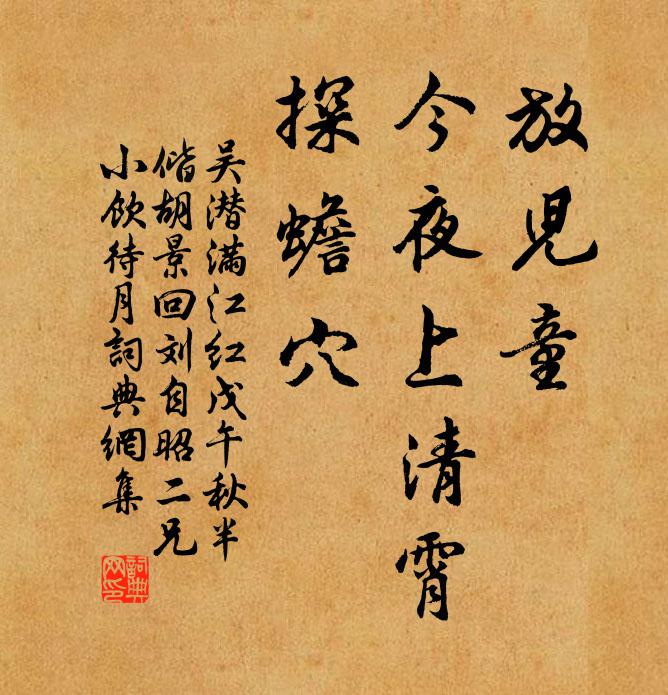 放児童
今夜上清霄
探蟾穴
吴潜满江红戊午秋半
偕胡景回刘自昭二兄
小饮待月詞典網集
詞典
网印